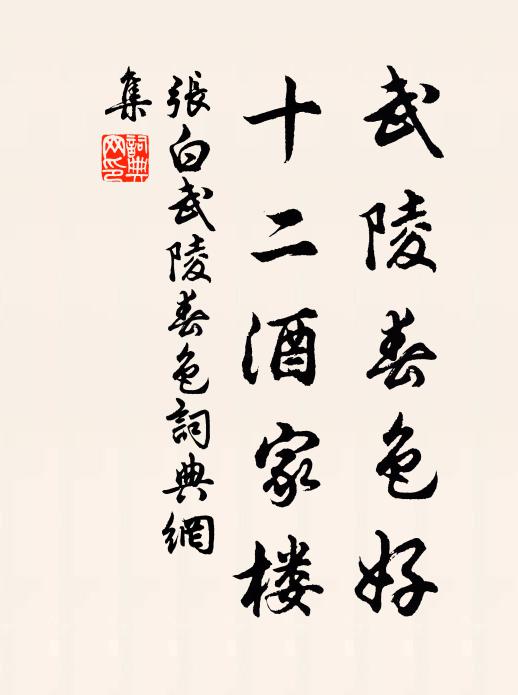 武陵春色好
十二酒家楼
張白武陵春色詞典網
集
詞典
网印